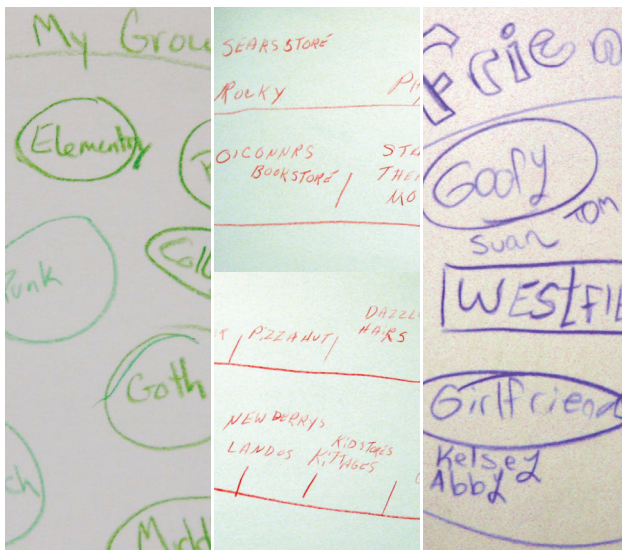 My Grou
Elementry
Coll
Punk
Goth
ch
Midd
SEARS STORE
ROCKY
PH
OICONNRS
BOOKSTORE
STA
THE
MO
PIZZA HUT
DAZZL
HAIRS
NEW DERRYS
LANDOS
KIDSTORES
KITTAGES
Frien
Goofy
Tom
Suan
WESTFIE
Girlfriend
Kelsey
Abby